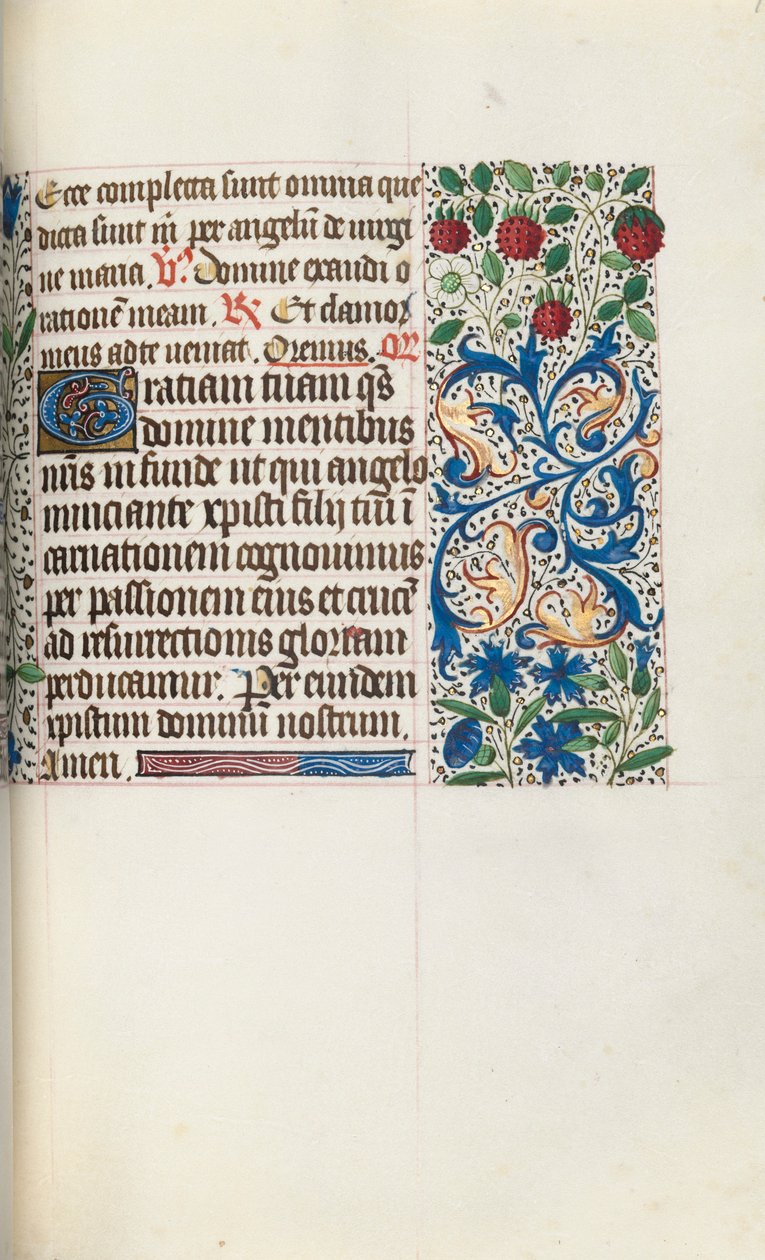 Ecce completa sunt omnia que
dicta sunt m̃ per angelũ de virgi
ne maria. V̾. Domine exaudi o
rationẽ meam. R̷ Et clamor
meus ad te veniat. Oremus. Oõ
Gratiam tuam q̃s
domine mentibus
nr̃is infunde ut qui angelo
nunciante xpisti filij tui ĩ
carnationem cognovimus
per passionem eius et crucẽ
ad resurrectionis gloriam
perducamur. Per eundem
xpistum dominũ nostrum.
Amen.